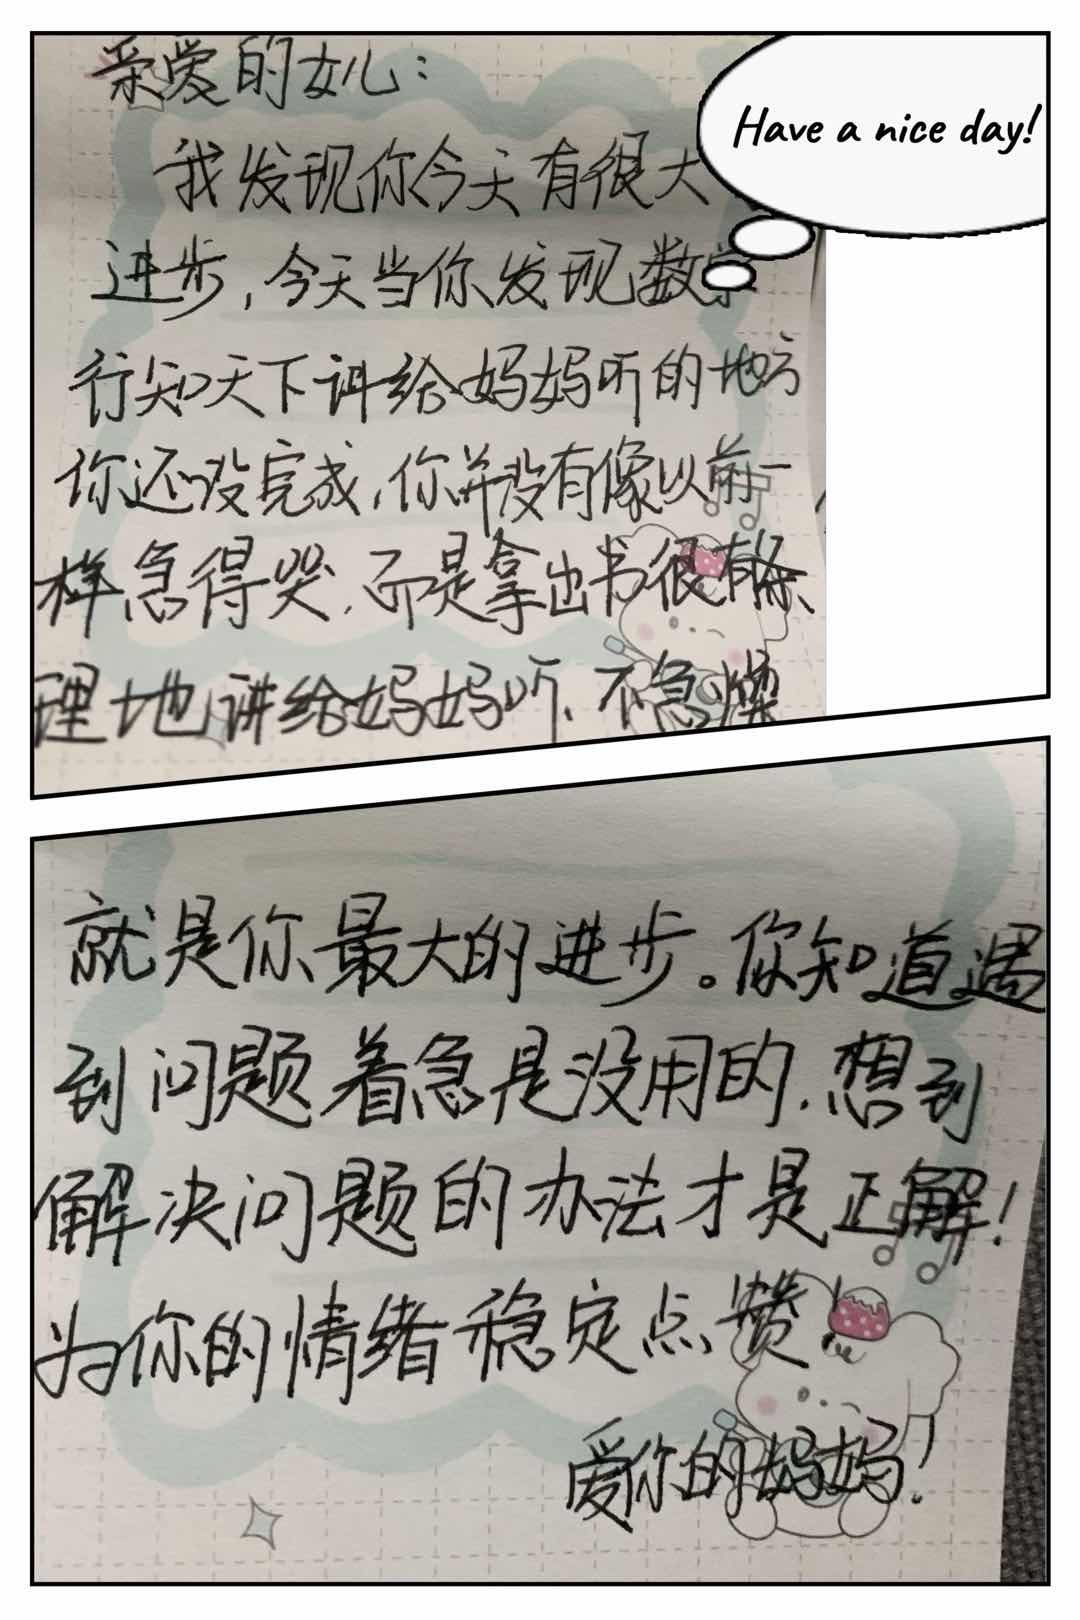 亲爱的女儿:
Have a nice day!
我发现你今天有很大
进步,今天当你发现数学
行知天下讲给妈妈听的地方
你还没完成,你并没有像以前一
样急得哭,而是拿出书很有条
理地讲给妈妈听、不急燥
就是你最大的进步。你知道遇
到问题着急是没用的,想到
解决问题的办法才是正解!
为你的情绪稳定点赞!
爱你的妈妈!